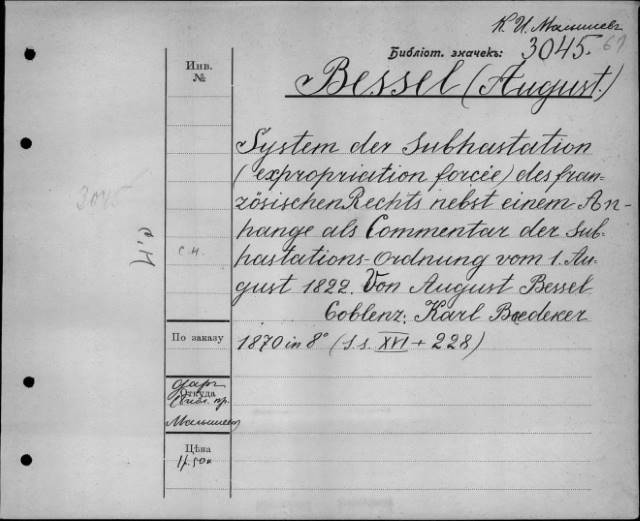 К. И. Малышевъ
Библіот. значекъ: 3045. 67
Инв. №
Bessel (August.)
System der Subhastation
(expropriation forcée) des fran-
zösischen Rechts nebst einem An-
hange als Commentar der Sub-
hastations-Ordnung vom 1. Au-
gust 1822. Von August Bessel
Coblenz, Karl Baedeker
1870 in 8° (S.s. XVI + 228)
3045
с.н.
По заказу
Откуда
Малышева
Цѣна